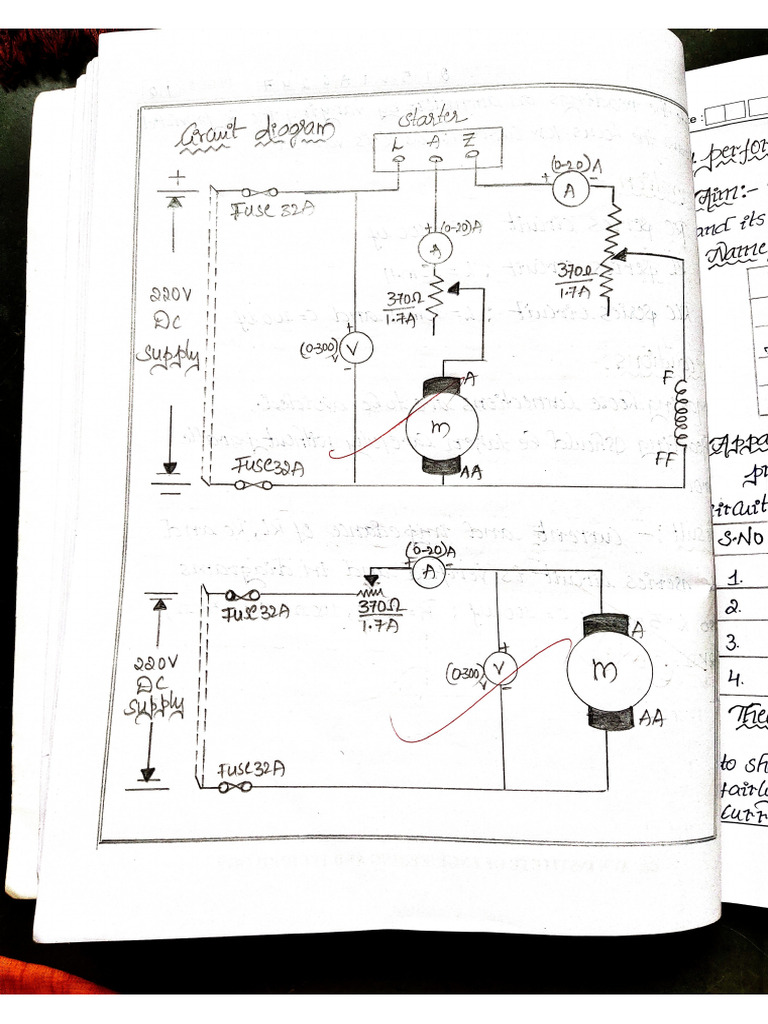 Circuit diagram
Starter
L A Z
+
Fuse 32A
220V
DC
Supply
+ (0-20)A
A
370Ω
1.7A
(0-20)A
+ -
A
370Ω
1.7A
+
(0-300)
V
V
-
A
m
AA
F
FF
Fuse32A
(0-20)A
+ -
A
Fuse32A
370Ω
1.7A
220V
DC
Supply
+
(0-300)
V
V
-
A
m
AA
Fuse32A
perfor
Aim:-
and its
Name
Appa
pr
circuit
S.No
1.
2.
3.
4.
to sh
fairl
curr